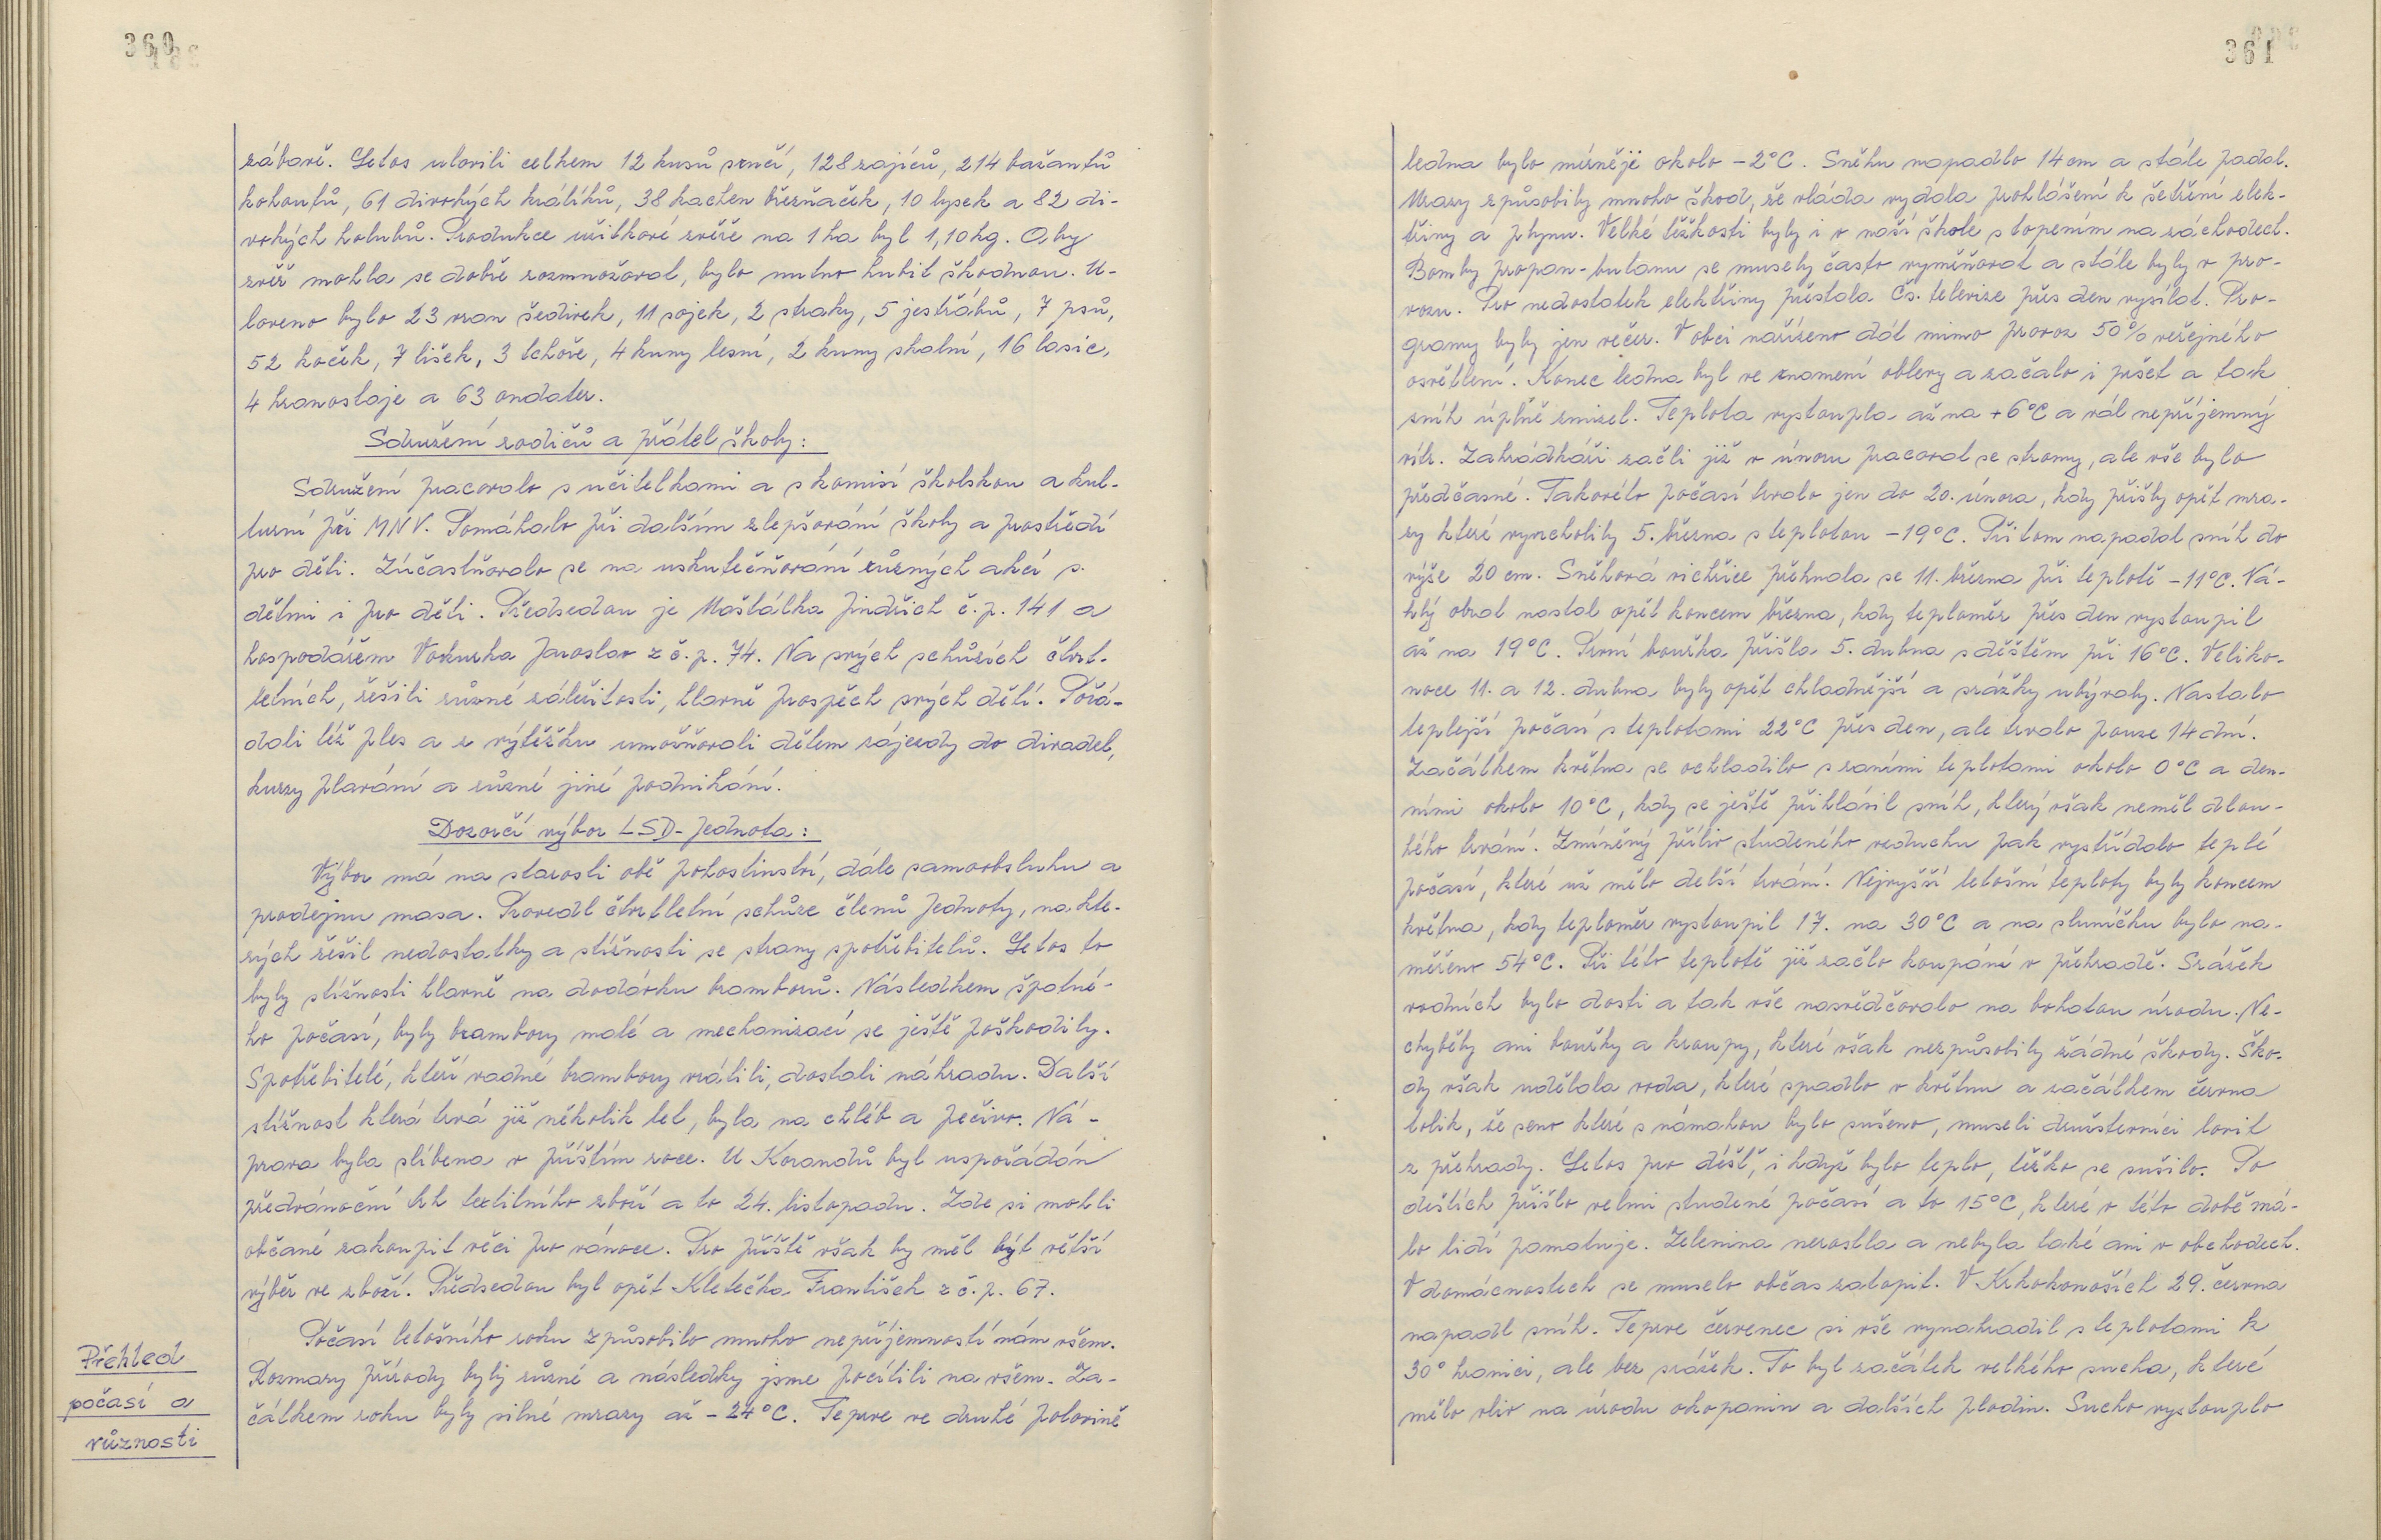 360
zábavě. Letos ulovili celkem 12 kusů srnčí, 128 zajíců, 214 bažantů
kohoutů, 61 divokých králíků, 38 kachen březňaček, 10 lysek a 82 di-
vokých holubů. Produkce užitkové zvěře na 1 ha byl 1,10 kg. Aby
zvěř mohla se dobře rozmnožovat, bylo nutno hubit škodnou. U-
loveno bylo 23 vran šedivek, 11 sojek, 2 straky, 5 jestřábů, 7 psů,
52 koček, 7 lišek, 3 tchoře, 4 kuny lesní, 2 kuny skalní, 16 lasic,
4 hranostaje a 63 ondater.
Sdružení rodičů a přátel školy:
Sdružení pracovalo s učitelkami a s komisí školskou a kul-
turní při MNV. Pomáhalo při dalším zlepšování školy a prostředí
pro děti. Zúčastňovalo se na uskutečňování různých akcí s
dětmi i pro děti. Předsedou je Maštálka Jindřich č.p. 141 a
hospodářem Vokurka Jaroslav z č.p. 74. Na svých schůzích čtvrt-
letních, řešili různé záležitosti, hlavně prospěch svých dětí. Pořá-
dali též ples a z výtěžku umožňovali dětem zájezdy do divadel,
kurzy plavání a různé jiné podnikání.
Dozorčí výbor LSD-Jednota:
Výbor má na starosti obě pohostinství, dále samoobsluhu a
prodejnu masa. Provedl čtvrtletní schůze členů Jednoty, na kte-
rých řešil nedostatky a stížnosti se strany spotřebitelů. Letos to
byly stížnosti hlavně na dodávku bramborů. Následkem špatné-
ho počasí, byly brambory malé a mechanizací se ještě poškodily.
Spotřebitelé, kteří vadné brambory vrátili, dostali náhradu. Další
stížnost která trvá již několik let, byla na chléb a pečivo. Ná-
prava byla slíbena v příštím roce. U Korandů byl uspořádán
předvánoční trh textilního zboží a to 24. listopadu. Zde si mohli
občané zakoupit věci pro vánoce. Pro příště však by měl být větší
výběr ve zboží. Předsedou byl opět Kletečka František z č.p. 67.
Přehled
počasí a
různosti
Počasí letošního roku způsobilo mnoho nepříjemností nám všem.
Rozmary přírody byly různé a následky jsme pocítili na všem. Za-
čátkem roku byly silné mrazy až -24°C. Teprve ve druhé polovině
361
ledna bylo mírněji okolo -2°C. Sněhu napadlo 14 cm a stále padal.
Mrazy způsobily mnoho škod, že vláda vydala prohlášení k šetření elek-
třiny a plynu. Velké těžkosti byly i v naší škole s topením na záchodech.
Bomby propan-butanu se musely často vyměňovat a stále byly v pro-
vozu. Pro nedostatek elektřiny přestala Čs. televize přes den vysílat. Pro-
gramy byly jen večer. V obci nařízeno dát mimo provoz 50% veřejného
osvětlení. Konec ledna byl ve znamení oblevy a začalo i pršet a tak
sníh úplně zmizel. Teplota vystoupla až na +6°C a vál nepříjemný
vítr. Zahrádkáři začli již v únoru pracovat se stromy, ale vše bylo
předčasné. Takovéto počasí trvalo jen do 20. února, kdy přišly opět mra-
zy které vyvrcholily 5. března s teplotou -19°C. Při tom napadal sníh do
výše 20 cm. Sněhová vichřice přehnala se 11. března při teplotě -11°C. Ná-
hlý obrat nastal opět koncem března, kdy teploměr přes den vystoupil
až na 19°C. První bouřka přišla 5. dubna s deštěm při 16°C. Veliko-
noce 11. a 12. dubna byly opět chladnější a srážky ubývaly. Nastalo
teplejší počasí s teplotami 22°C přes den, ale trvalo pouze 14 dní.
Začátkem května se ochladilo s raními teplotami okolo 0°C a den-
ními okolo 10°C, kdy se ještě přihlásil sníh, který však neměl dlou-
hého trvání. Zmíněný příliv studeného vzduchu pak vystřídalo teplé
počasí, které už mělo delší trvání. Nejvyšší letošní teploty byly koncem
května, kdy teploměr vystoupil 17. na 30°C a na sluníčku bylo na-
měřeno 54°C. Při této teplotě již začlo koupání v přehradě. Srážek
vodních bylo dosti a tak vše nasvědčovalo na bohatou úrodu. Ne-
chyběly ani bouřky a kroupy, které však nezpůsobily žádné škody. Ško-
dy však udělala voda, které spadlo v květnu a začátkem června
tolik, že seno které s námahou bylo sušeno, museli družstevníci lovit
z přehrady. Letos pro déšť, i když bylo teplo, těžko se sušilo. Po
deštích přišlo velmi studené počasí a to 15°C, které v této době má-
lo lidí pamatuje. Zelenina nerostla a nebyla také ani v obchodech.
V domácnostech se muselo občas zatopit. V Krkokonoších 29. června
napadl sníh. Teprve červenec si vše vynahradil s teplotami k
30° hranici, ale bez srážek. To byl začátek velkého sucha, které
mělo vliv na úrodu okopanin a dalších plodin. Sucho vystouplo